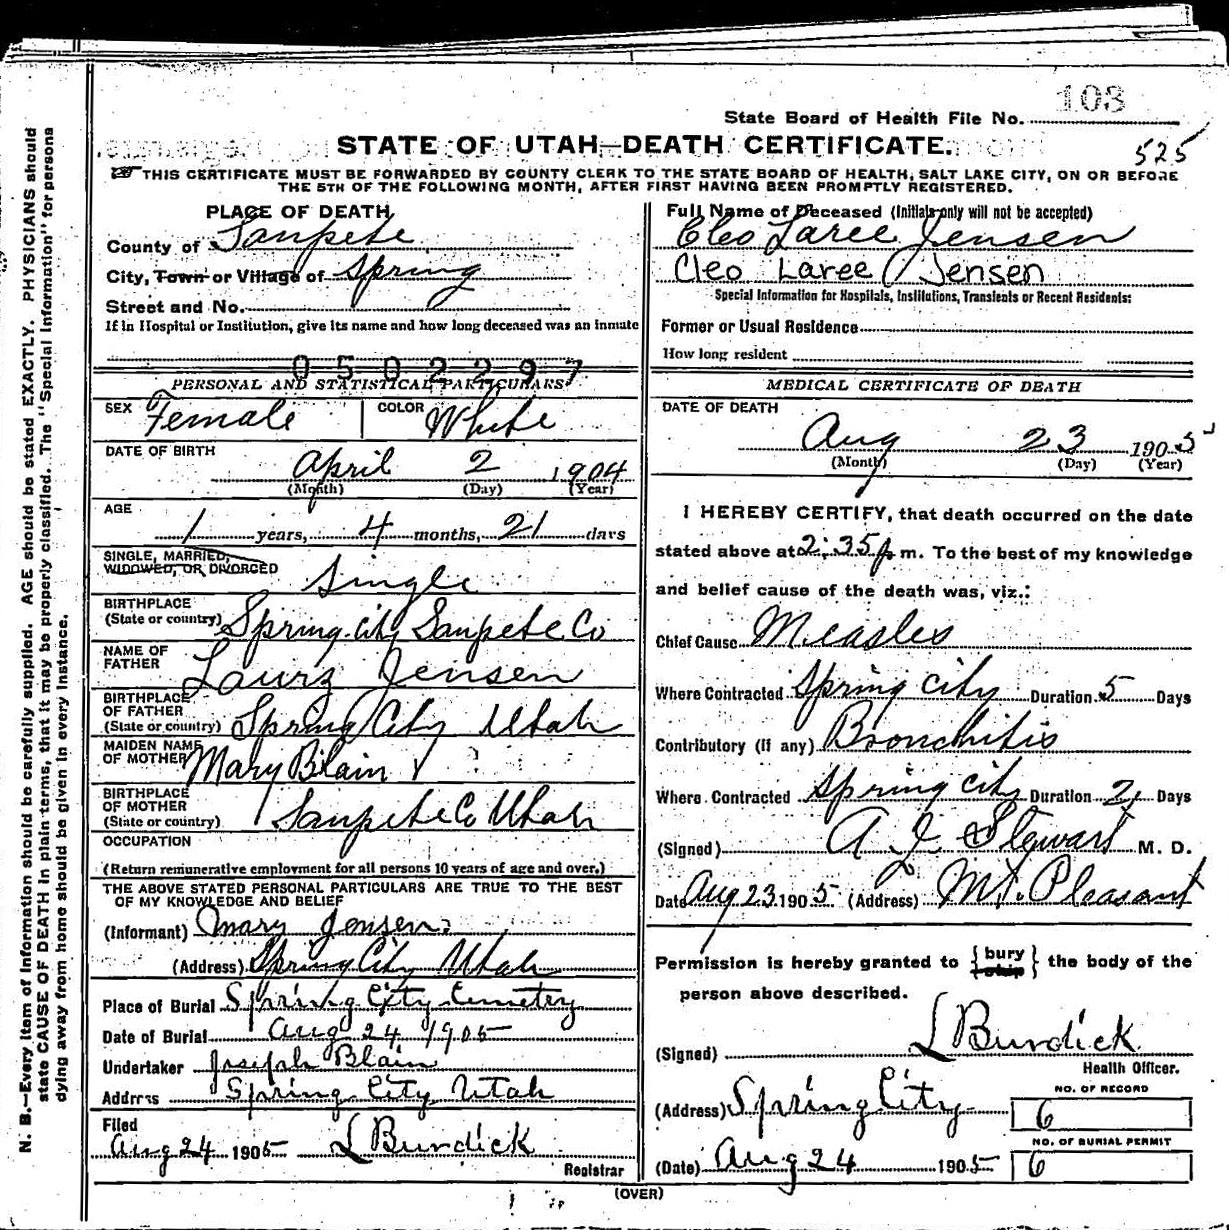 103
State Board of Health File No.
STATE OF UTAH—DEATH CERTIFICATE.
525
THIS CERTIFICATE MUST BE FORWARDED BY COUNTY CLERK TO THE STATE BOARD OF HEALTH, SALT LAKE CITY, ON OR BEFORE
THE 5TH OF THE FOLLOWING MONTH, AFTER FIRST HAVING BEEN PROMPTLY REGISTERED.
PLACE OF DEATH
County of Sanpete
City, Town or Village of Spring
Street and No.
If in Hospital or Institution, give its name and how long deceased was an inmate
0502297
PERSONAL AND STATISTICAL PARTICULARS
SEX Female COLOR White
DATE OF BIRTH
April 2 1904
(Month) (Day) (Year)
AGE
1 years, 4 months, 21 days
SINGLE, MARRIED,
WIDOWED, OR DIVORCED Single
BIRTHPLACE
(State or country) Spring City Sanpete Co
NAME OF
FATHER Laurz Jensen
BIRTHPLACE
OF FATHER
(State or country) Spring City Utah
MAIDEN NAME
OF MOTHER Mary Blain
BIRTHPLACE
OF MOTHER
(State or country) Sanpete Co Utah
OCCUPATION
(Return remunerative employment for all persons 10 years of age and over.)
THE ABOVE STATED PERSONAL PARTICULARS ARE TRUE TO THE BEST
OF MY KNOWLEDGE AND BELIEF
(Informant) Mary Jensen
(Address) Spring City Utah
Place of Burial Spring City Cemetry
Date of Burial Aug 24 1905
Undertaker Joseph Blain
Address Spring City Utah
Filed
Aug 24 1905 L Burdick
Registrar
Full Name of Deceased (Initials only will not be accepted)
Cleo Laree Jensen
Cleo Laree Jensen
Special Information for Hospitals, Institutions, Transients or Recent Residents:
Former or Usual Residence
How long resident
MEDICAL CERTIFICATE OF DEATH
DATE OF DEATH
Aug 23 1905
(Month) (Day) (Year)
I HEREBY CERTIFY, that death occurred on the date
stated above at 2:35 p. m. To the best of my knowledge
and belief cause of the death was, viz.:
Chief Cause Measles
Where Contracted Spring City Duration 5 Days
Contributory (if any) Bronchitis
Where Contracted Spring City Duration 2 Days
(Signed) A J Stewart M. D.
Date Aug 23 1905 (Address) Mt. Pleasant
Permission is hereby granted to {bury
ship} the body of the
person above described.
(Signed) L Burdick
Health Officer.
(Address) Spring City
NO. OF RECORD
6
NO. OF BURIAL PERMIT
(Date) Aug 24 1905 6
(OVER)
N. B.—Every item of information should be carefully supplied. AGE should be stated EXACTLY. PHYSICIANS should
state CAUSE OF DEATH in plain terms, that it may be properly classified. The "Special Information" for persons
dying away from home should be given in every instance.